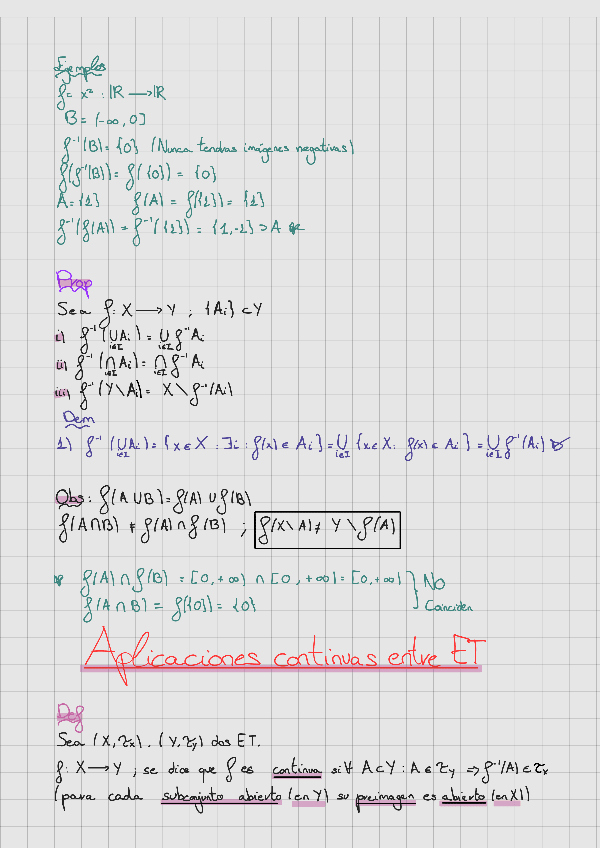 Ejemplos
f = x² : ℝ → ℝ
B = (-∞, 0]
f⁻¹(B) = {0} (Nunca tendras imágenes negativas)
f(f⁻¹(B)) = f({0}) = {0}
A = {1} f(A) = f({1}) = {1}
f⁻¹(f(A)) = f⁻¹({1}) = {1,-1} ⊃ A
Prop
Sea f: X → Y ; {Ai} ⊂ Y
i) f⁻¹(∪_{i∈I} Ai) = ∪_{i∈I} f⁻¹Ai
ii) f⁻¹(∩_{i∈I} Ai) = ∩_{i∈I} f⁻¹Ai
iii) f⁻¹(Y\Ai) = X \ f⁻¹(Ai)
Dem
1) f⁻¹(∪_{i∈I} Ai) = {x∈X : ∃i : f(x) ∈ Ai} = ∪_{i∈I} {x∈X : f(x) ∈ Ai} = ∪_{i∈I} f⁻¹(Ai)
Obs: f(A∪B) = f(A) ∪ f(B)
f(A∩B) ≠ f(A) ∩ f(B) ; f(X\A) ≠ Y \ f(A)
f(A) ∩ f(B) = [0,+∞) ∩ [0,+∞) = [0,+∞) } No
f(A∩B) = f({0}) = {0} Coinciden
Aplicaciones continuas entre ET
Def
Sea (X,τx), (Y,τy) dos ET.
f: X → Y ; se dice que f es continua si ∀ A⊂Y : A∈τy ⇒ f⁻¹(A) ∈ τx
(para cada subconjunto abierto (en Y) su preimagen es abierto (en X))